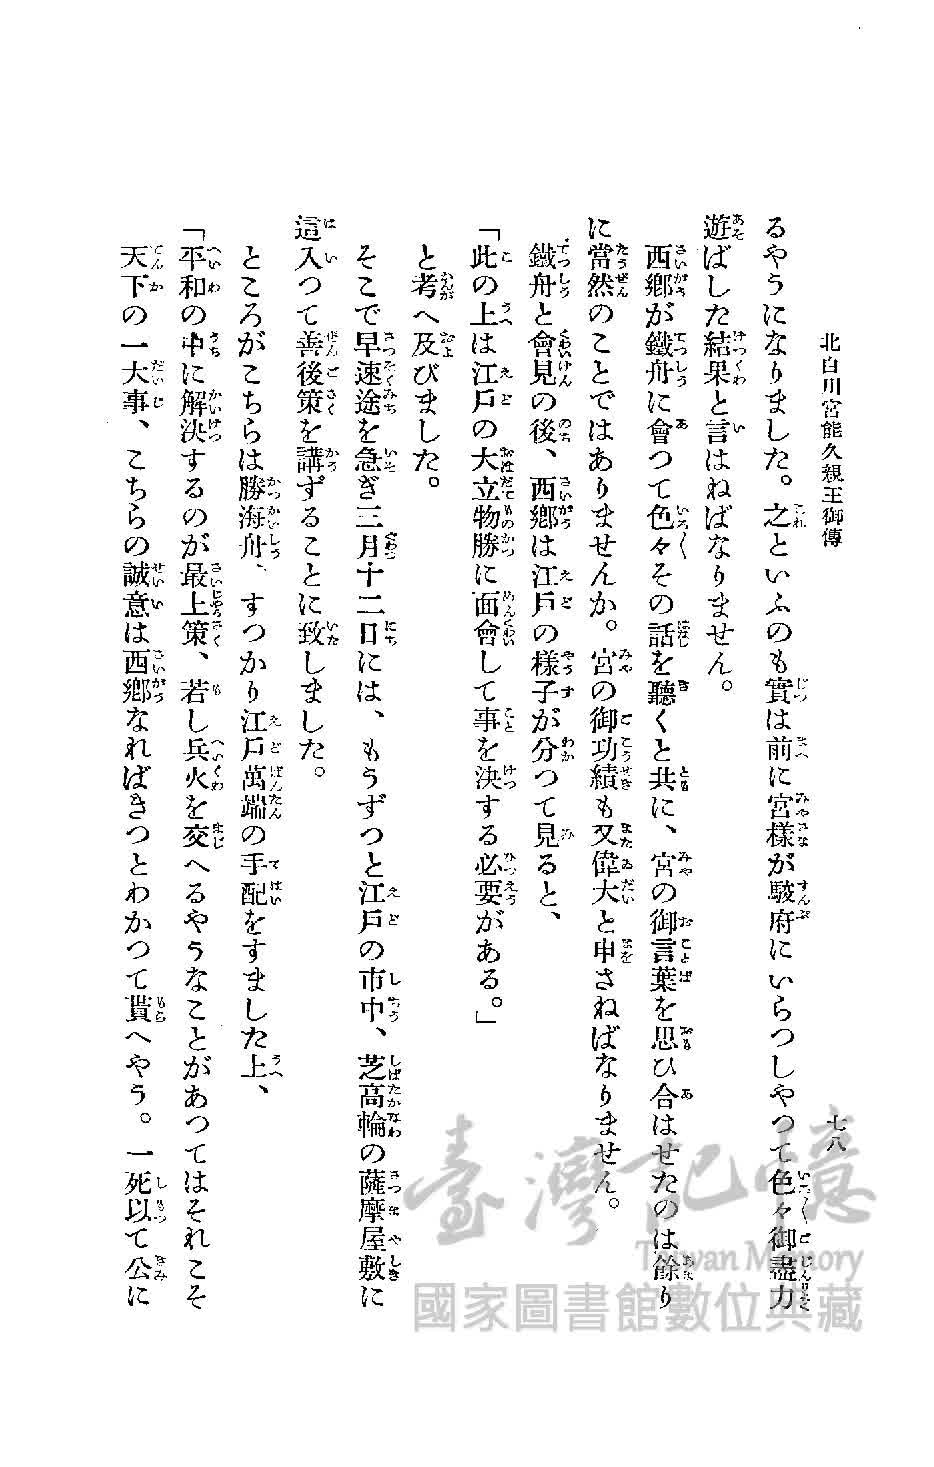 北白川宮能久親王御傳
七八
るやうになりました。之といふのも實は前に宮樣が駿府にいらつしやつて色々御盡力
遊ばした結果と言はねばなりません。
西鄕が鐵舟に會つて色々その話を聽くと共に、宮の御言葉を思ひ合はせたのは餘り
に當然のことではありませんか。宮の御功績も又偉大と申さねばなりません。
鐵舟と會見の後、西鄕は江戶の樣子が分つて見ると、
「此の上は江戶の大立物勝に面會して事を決する必要がある。」
と考へ及びました。
そこで早速途を急ぎ三月十二日には、もうずつと江戶の市中、芝高輪の薩摩屋敷に
這入つて善後策を講ずることに致しました。
ところがこちらは勝海舟、すつかり江戶萬端の手配をすました上、
「平和の中に解決するのが最上策、若し兵火を交へるやうなことがあつてはそれこそ
天下の一大事、こちらの誠意は西鄕なればきつとわかつて貰へやう。一死以て公に
臺灣記憶
Taiwan Memory
國家圖書館數位典藏